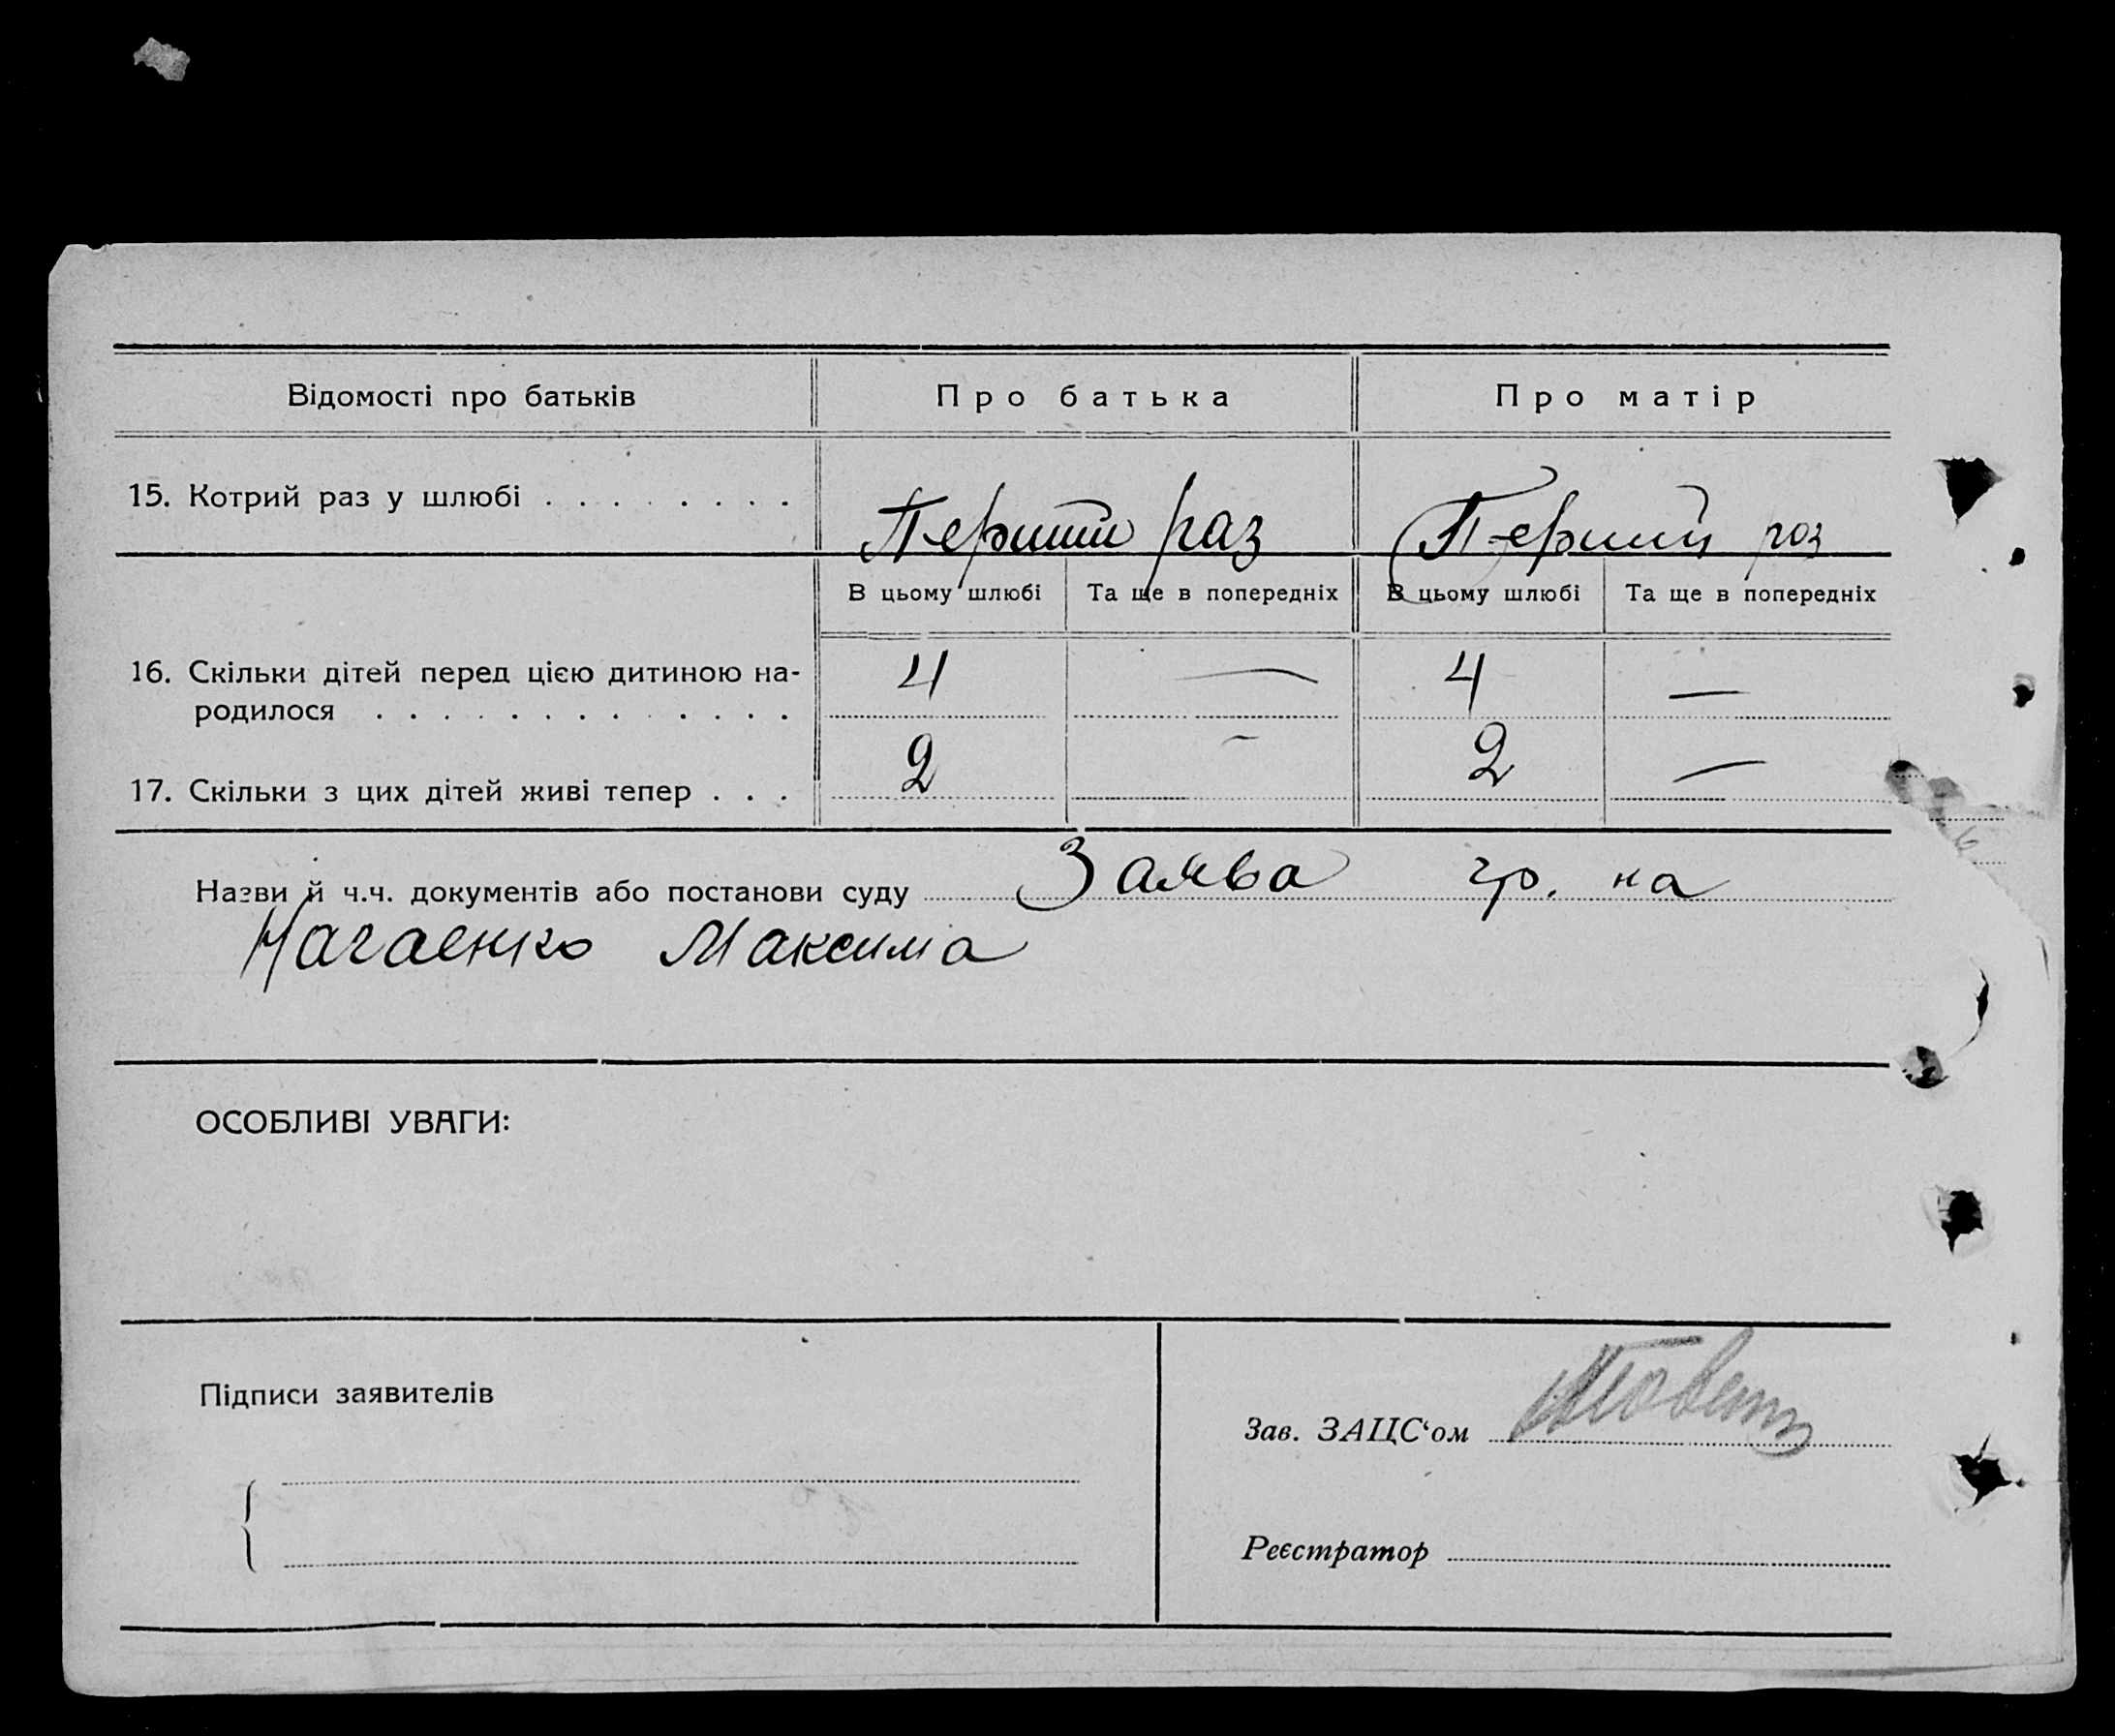 Відомості про батьків Про батька Про матір
15. Котрий раз у шлюбі . . . . . . . . Перший раз Перший раз
В цьому шлюбі Та ще в попередніх В цьому шлюбі Та ще в попередніх
16. Скільки дітей перед цією дитиною на- 4 — 4 —
родилося . . . . . . . . . . . . .
17. Скільки з цих дітей живі тепер . . . 2 - 2 —
Назви й ч.ч. документів або постанови суду Заява гр. на
Нагаєнко Максима
ОСОБЛИВІ УВАГИ:
Підписи заявителів
Зав. ЗАЦС‘ом
Реєстратор